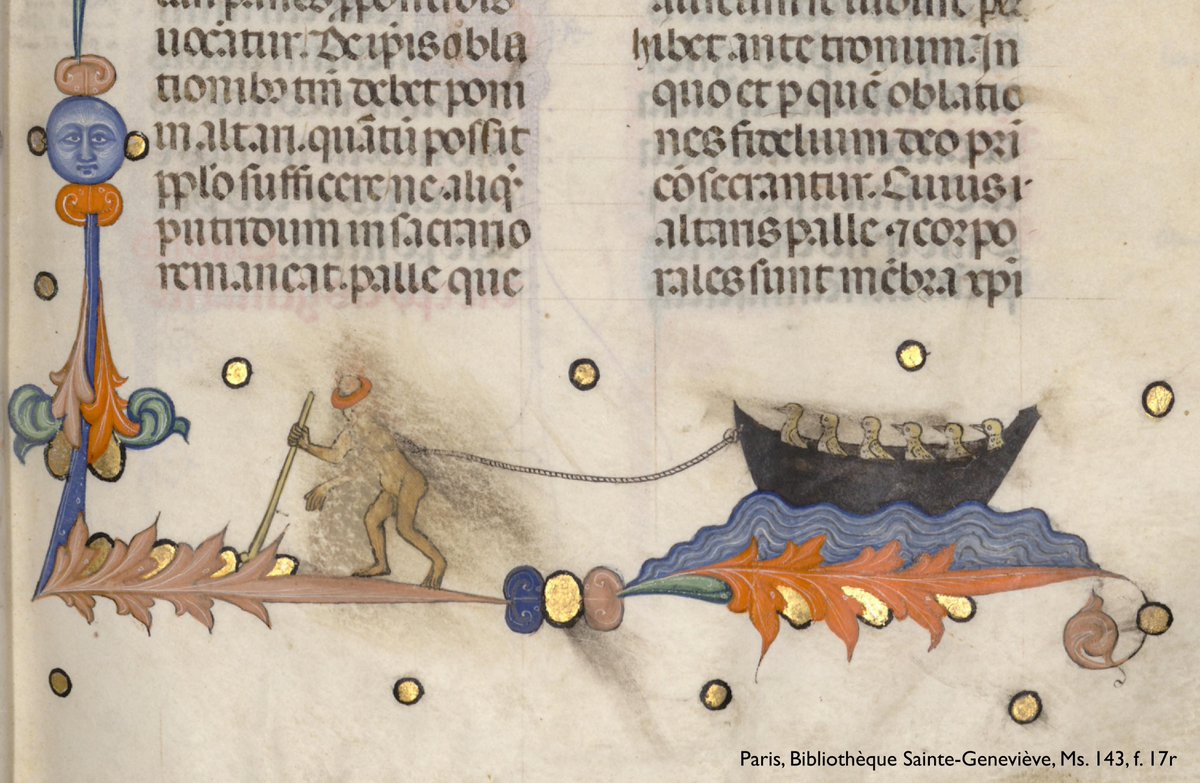 panes
uocatur. De ip̄is obla
tionibꝫ tm̄ debet poni
in altari. quātū possit
pp̄lo sufficere ne aliqͥ
putridum in sacrario
remaneat. palle que
hibet ante tronum. In
quo et ꝑ quē oblatio
nes fidelium deo pr̄i
cōsecrantur. Cuius
altaris palle ⁊ corpo
rales sunt mēbra xp̄i
Paris, Bibliothèque Sainte-Geneviève, Ms. 143, f. 17r